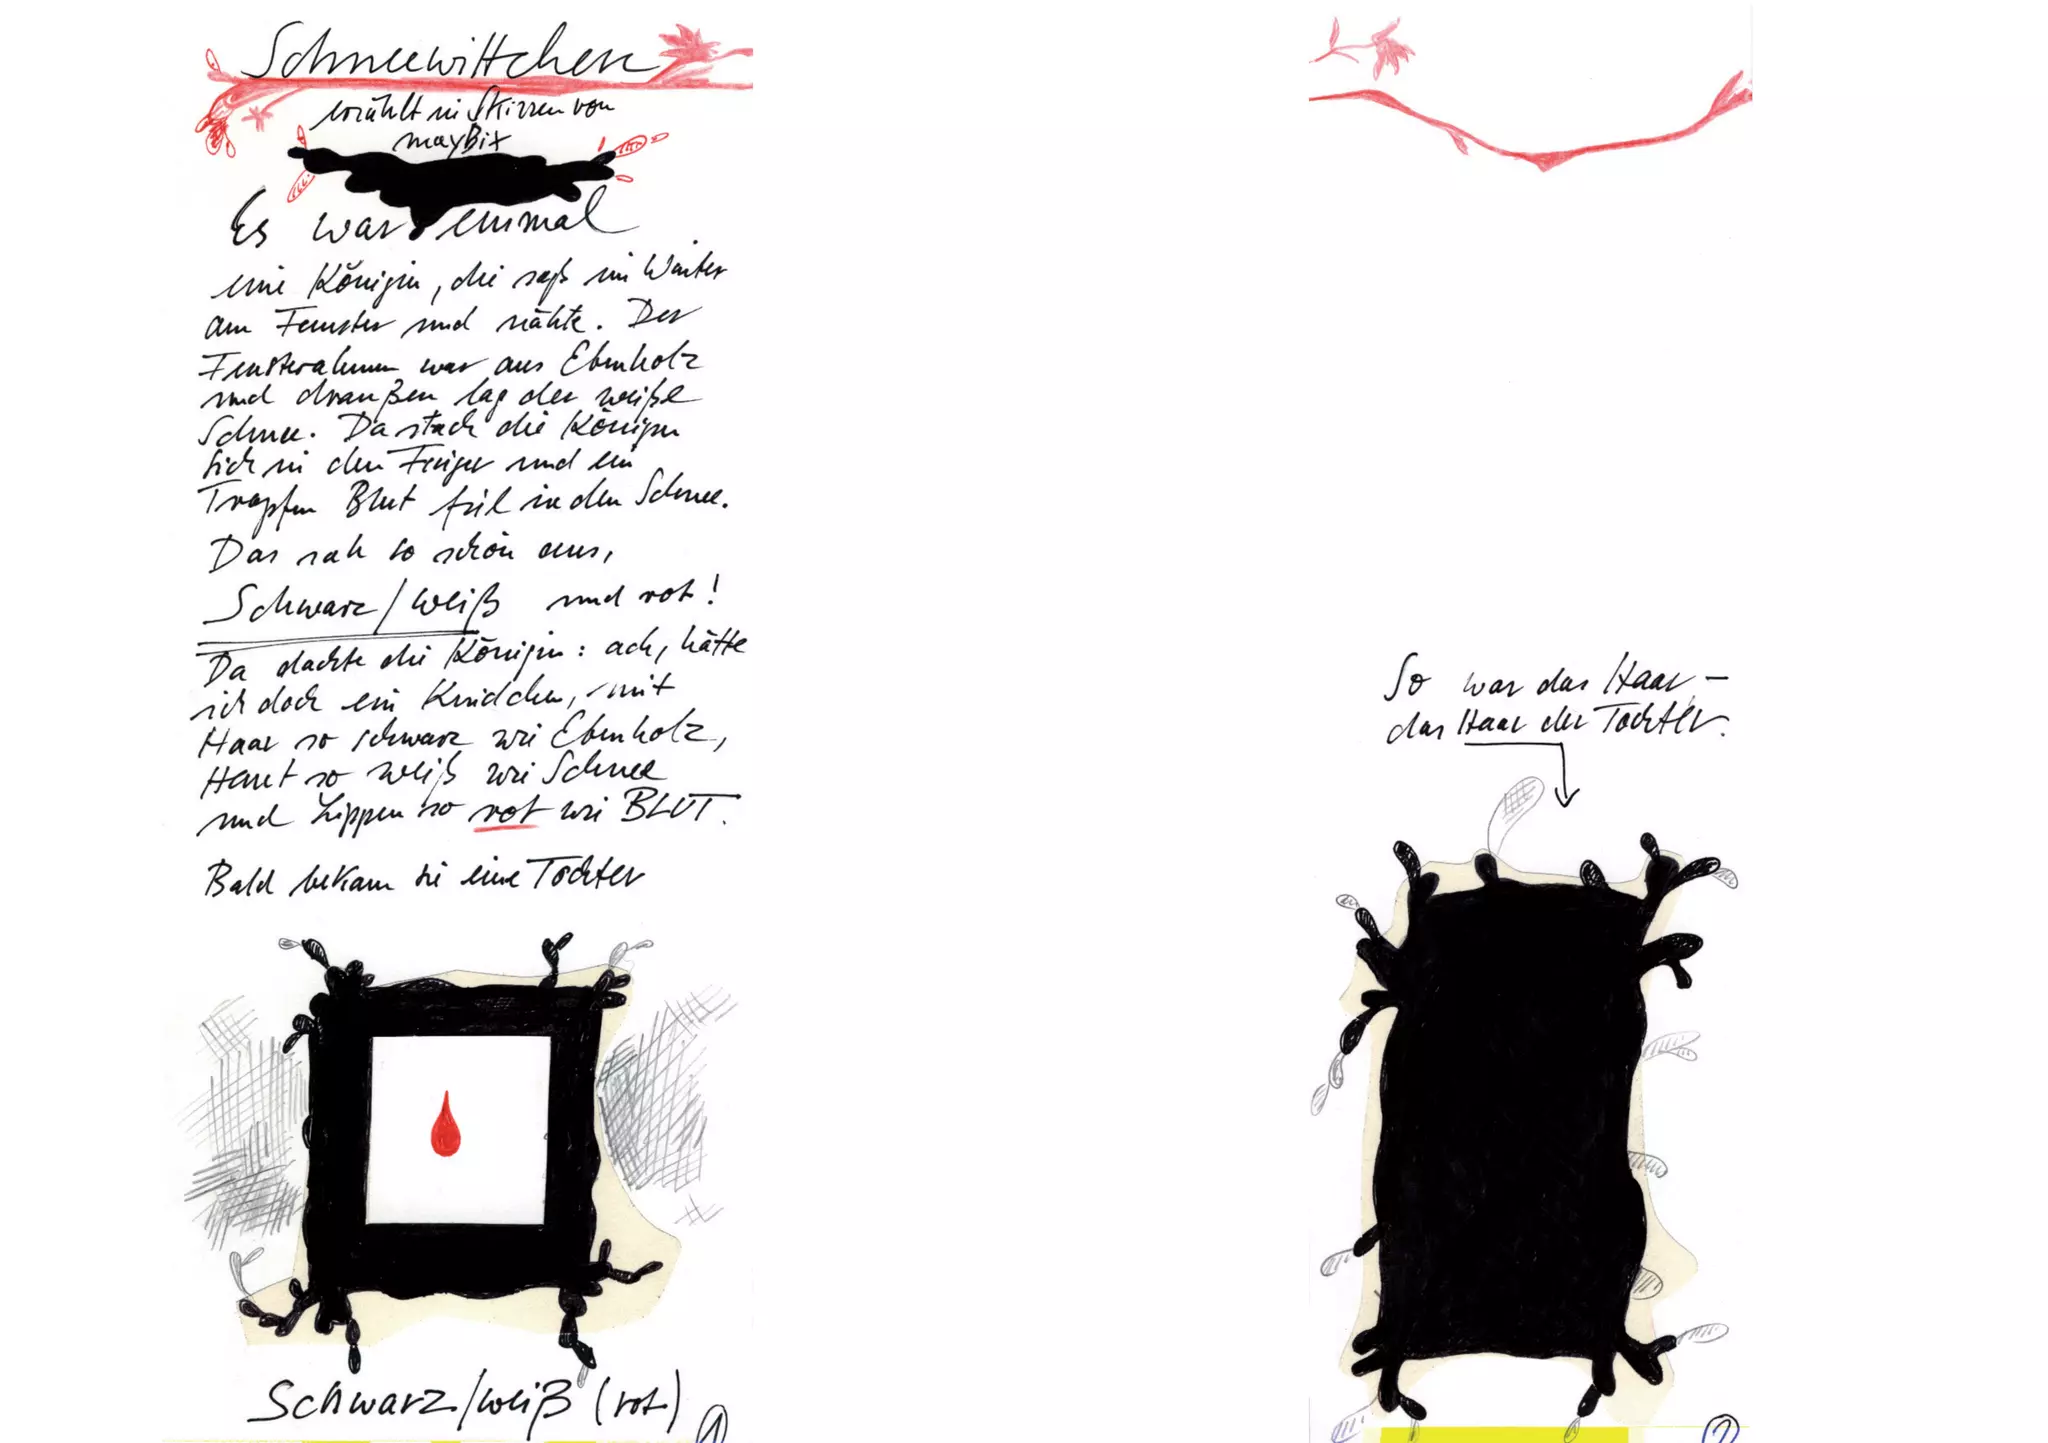 Schneewittchen
erzählt in Skizzen von
mayBix
Es war einmal
eine Königin, die saß im Winter
am Fenster und nähte. Der
Fensterahmen war aus Ebenholz
und draußen lag der weiße
Schnee. Da stach die Königin
sich in den Finger und ein
Tropfen Blut fiel in den Schnee.
Das sah so schön aus,
Schwarz/weiß und rot!
Da dachte die Königin: ach, hätte
ich doch ein Kindchen, mit
Haar so schwarz wie Ebenholz,
Haut so weiß wie Schnee
und Lippen so rot wie BLUT.
Bald bekam sie eine Tochter
Schwarz/weiß (rot)
1
So war das Haar –
das Haar der Tochter.
2